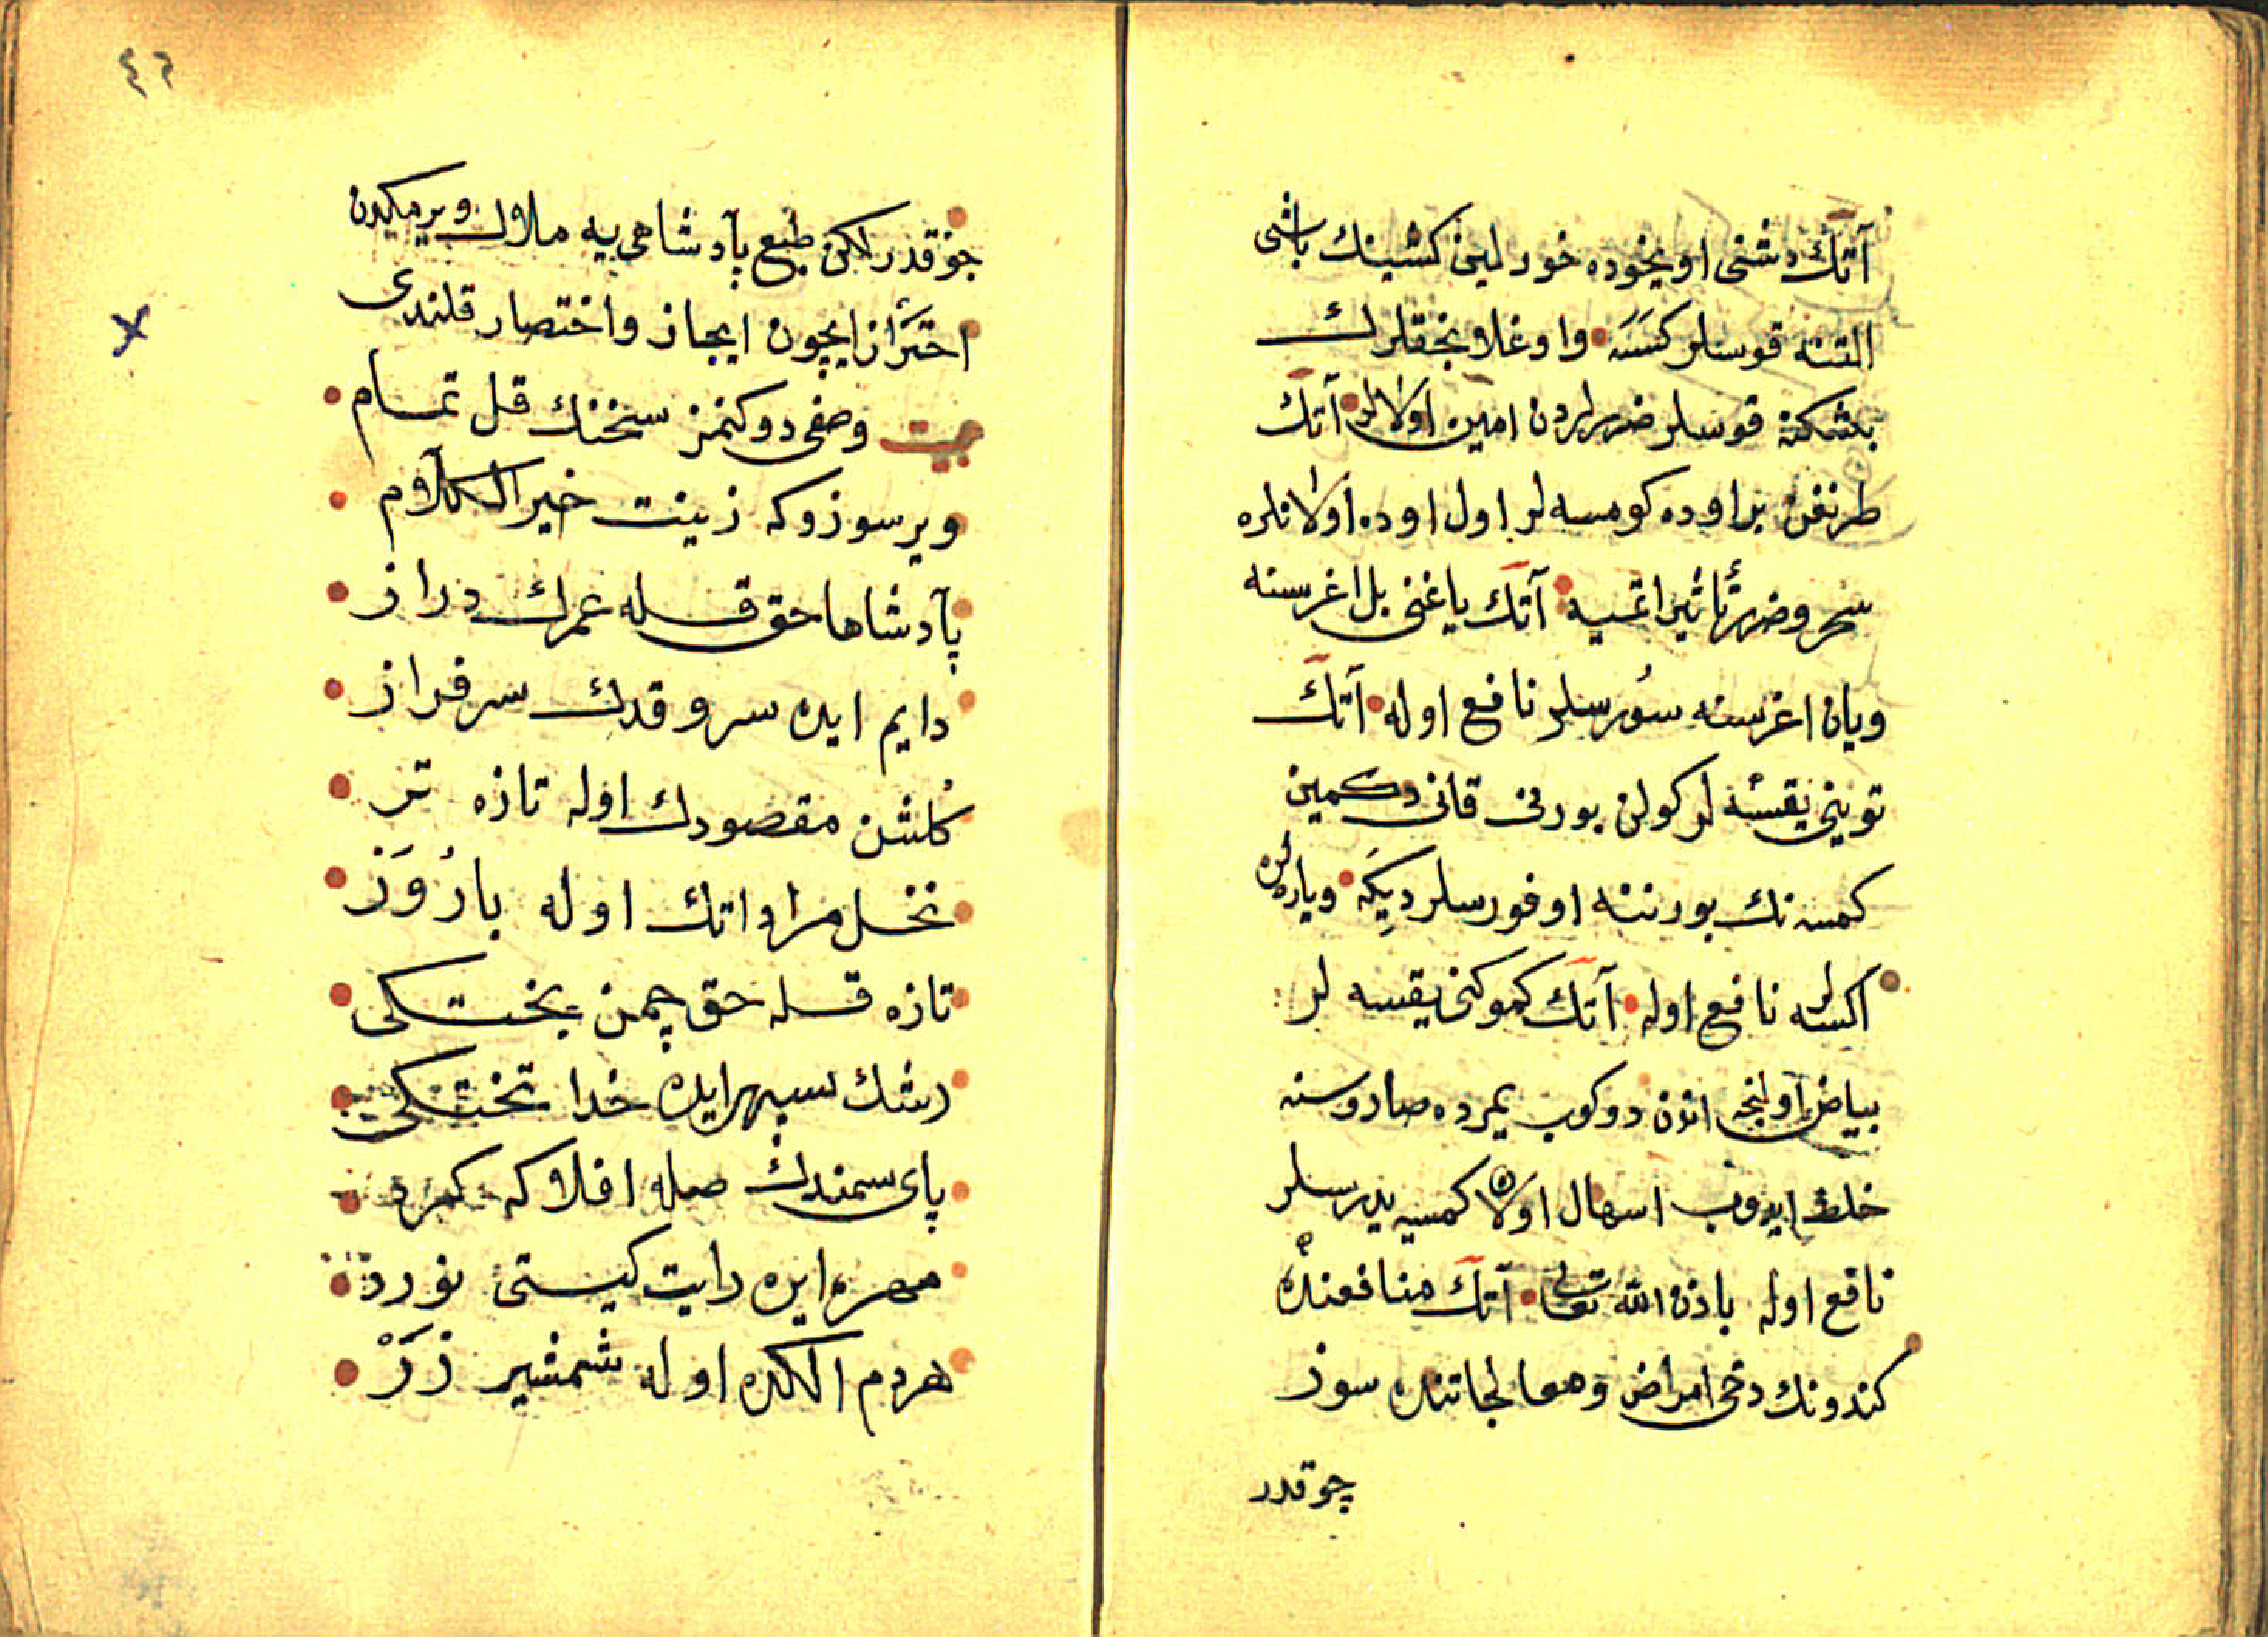 آتك دشنى اويخوده خورلين كشينك باشى
التنه قوسلر كسه واوغلانجقلرك
بشكنه قوسلر ضررلردن امين اولالر آتك
طرنغن بر اوده كومسه لر اول اوده اولانلره
سحر وضرر تأثير اتميه آتك ياغنى بل اغرسنه
ويان اغرسنه سُورسلر نافع اوله آتك
توينى يقسه لر كولن بورنى قانى دكمين
كمسه نك بورننه اوفورسلر ديكه ويارهلره
اكسه لر نافع اوله آتك كموكنى يقسه لر
بياض اولنجه اندن دوكوب يمرده صاروسنه
خلط ايدوب اسهال اولان كمسيه يدرسلر
نافع اوله باذن الله تعالى آتك منافعنده
كندونك دخى امراض ومعالجاتنده سوز
چوقدر
٤٢
چوقدر لكن طبع پادشاهى يه ملال ويرمكدن
احتراز ايچون ايجاز واختصار قلندى
بيت وصفى دوكنمز سخننك قل تمام
وير سوزوكه زينت خير الكلام
پادشاها حق قله عمرك دراز
دايم ايده سرو قدك سرفراز
كُلشن مقصودك اوله تازه تر
نخل مراداتك اوله بارُوَر
تازه قله حق چمن بختكى
رشك سپهر ايده خدا تختكى
پاى سمندك صله افلاكه كرد
مهره ايره رايت كيتى نورد
هردم الكده اوله شمشير زَرْ